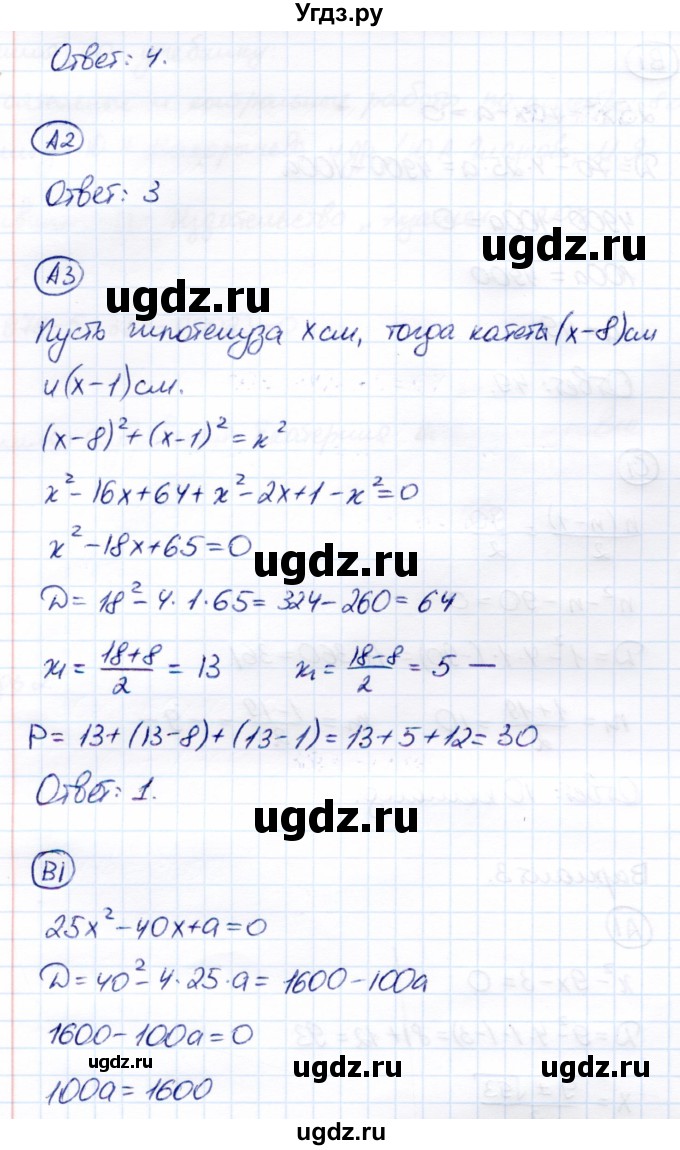 Угдз.ру
Ответ: 4.
А2
Ответ: 3
ugdz.ru
А3
ugdz.ru
Пусть гипотенуза х см, тогда катеты (х-8) см
и (х-1) см.
(х-8)²+(х-1)²=х²
х²-16х+64+х²-2х+1-х²=0
х²-18х+65=0
ugdz.ru
D=18²-4·1·65=324-260=64
х₁=(18+8)/2=13 х₁=(18-8)/2=5 —
P=13+(13-8)+(13-1)=13+5+12=30
Ответ: 1.
ugdz.ru
В1
25х²-40х+а=0
D=40²-4·25·а=1600-100а
1600-100а=0
ugdz.ru
ugdz.ru
ugdz.ru
100а=1600
ugdz.ru